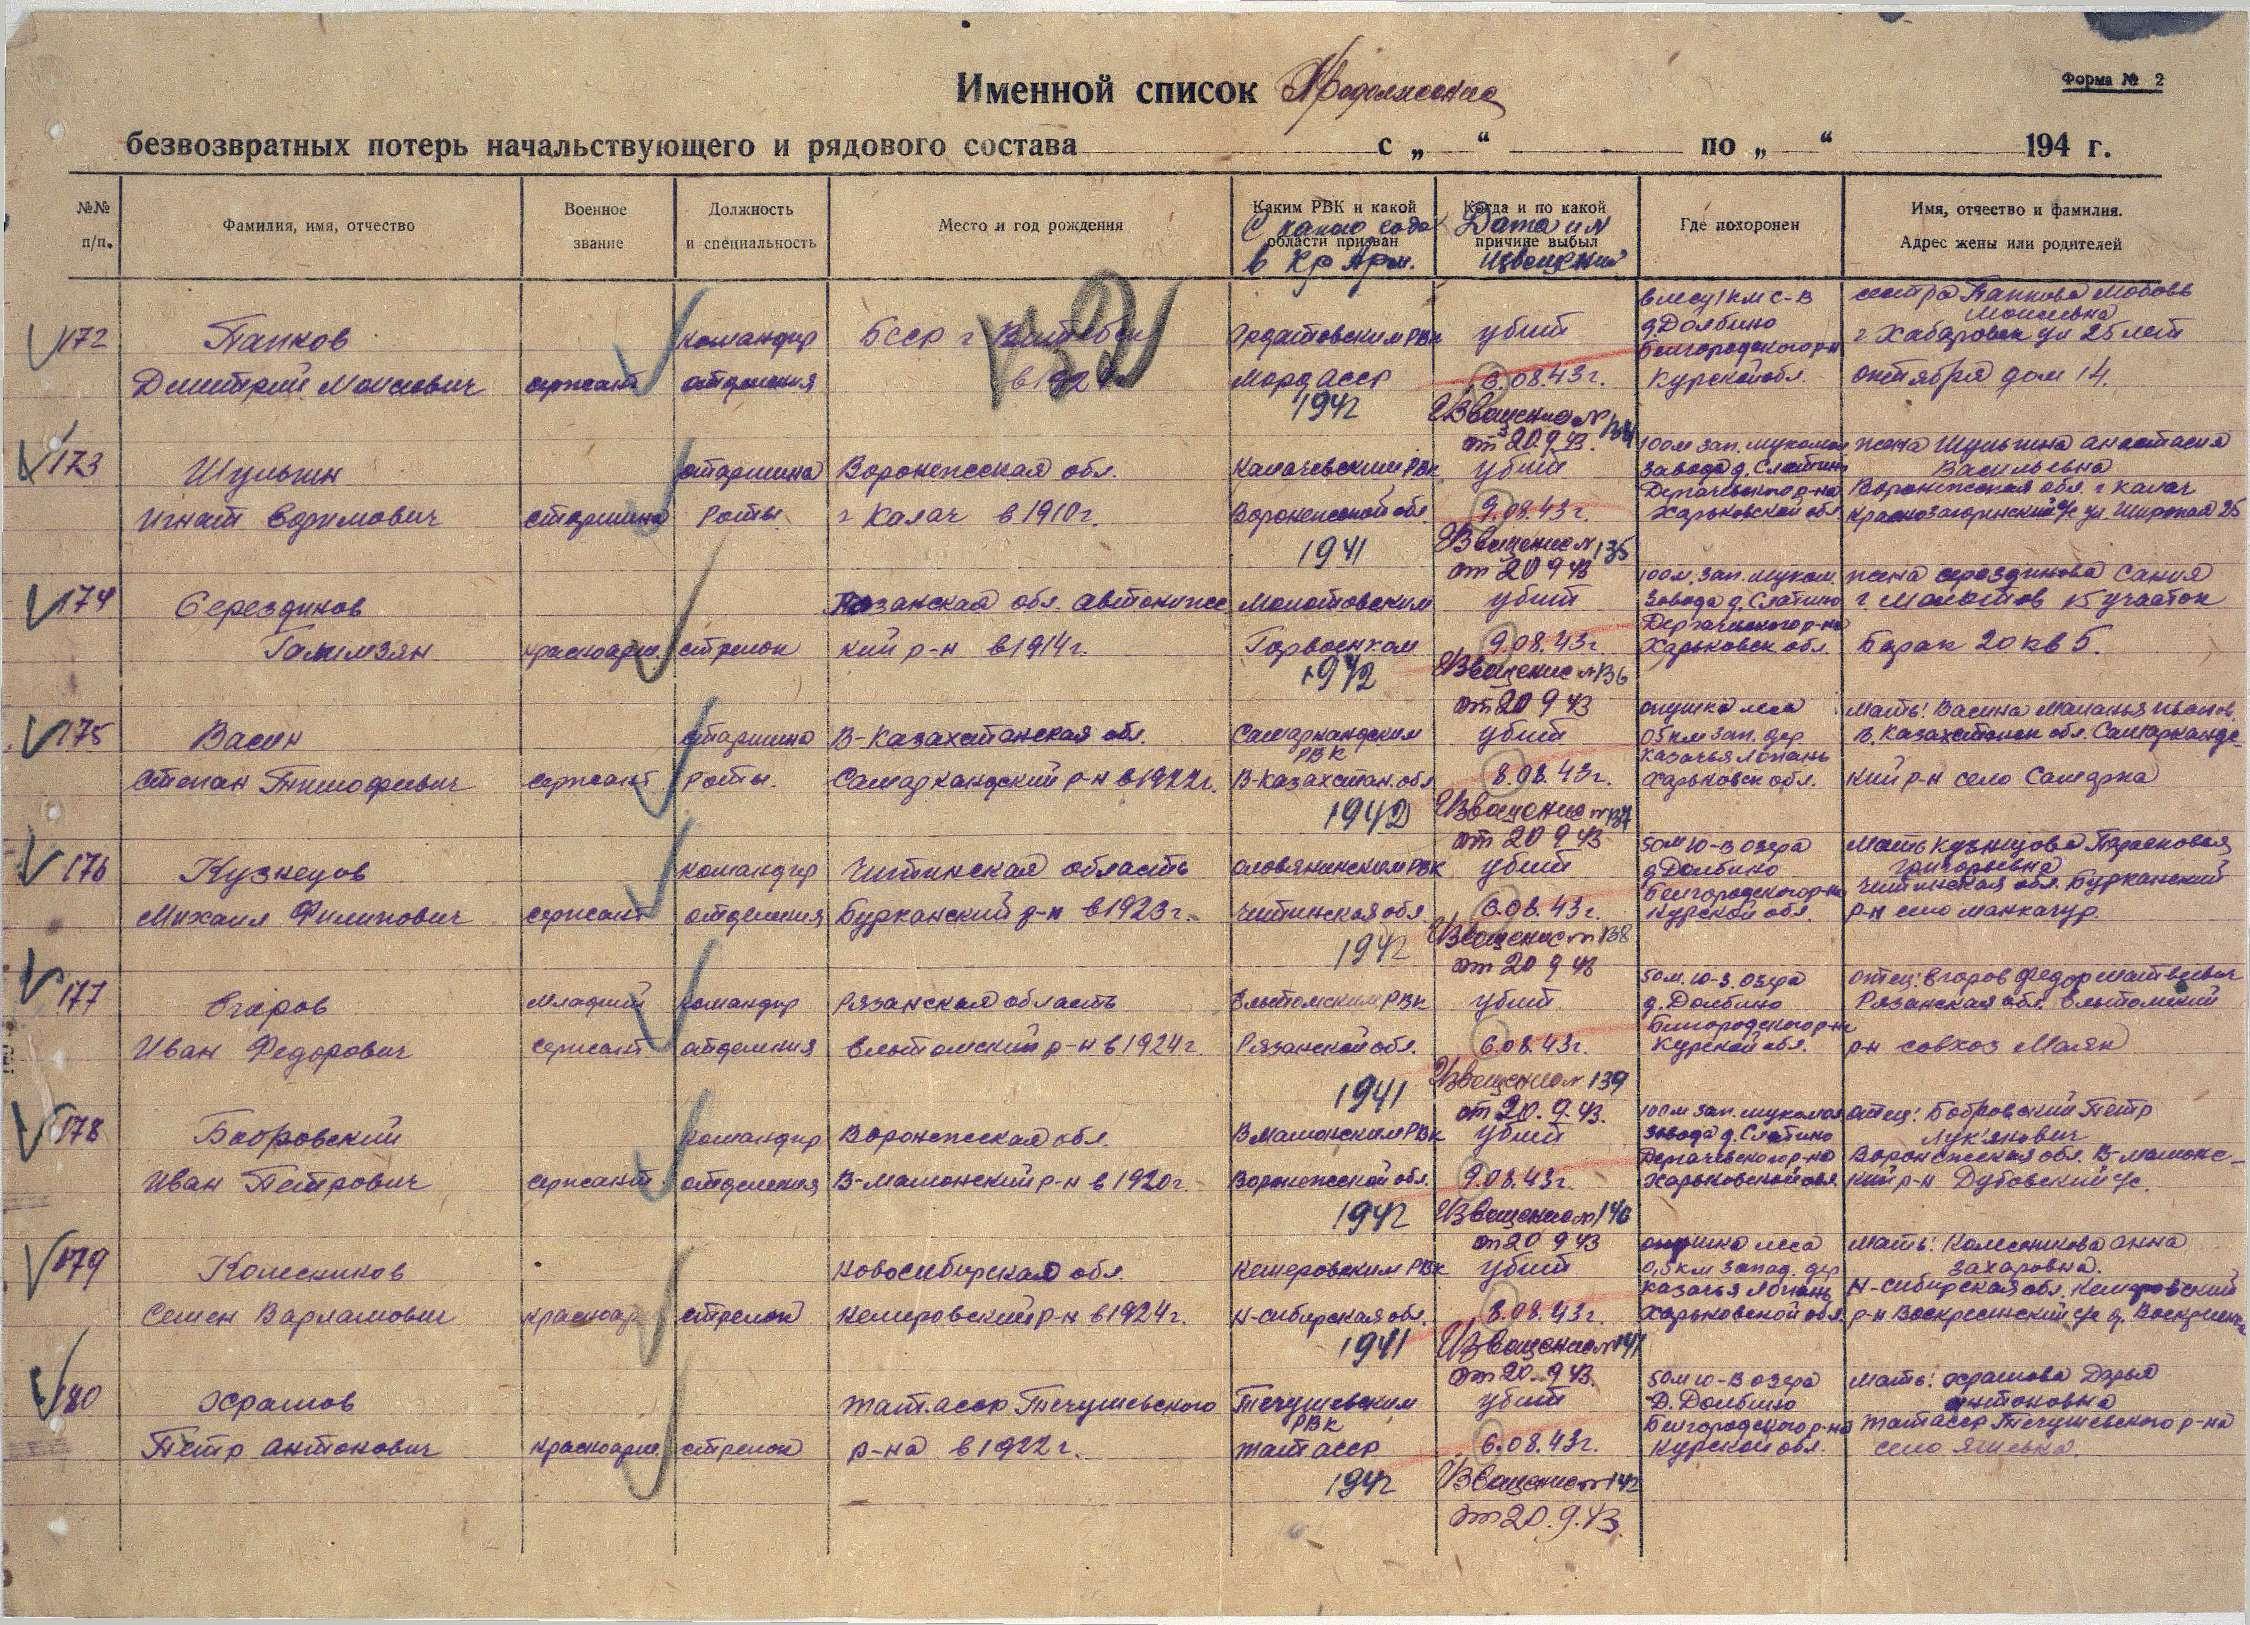 Именной список Продолжение
Форма № 2
безвозвратных потерь начальствующего и рядового состава с „ “ по „ “ 194 г.
№№ п/п.
Фамилия, имя, отчество
Военное звание
Должность и специальность
Место и год рождения
Каким РВК и какой области призван
С какого года в Кр Арм.
Когда и по какой причине выбыл
Дата и N извещений
Где похоронен
Имя, отчество и фамилия.
Адрес жены или родителей
172 Папков командир БССР г Витебск Ардатовским РВК убит
Дмитрий Моисеевич сержант отделения в 192 Морд АССР 6.08.43г.
1942 Извещение N 134 от 20.9.43.
в лесу 1 км С-В д Долбино Белгородского р-н Курской обл.
сестра Папкова Любовь Моисеевна г Хабаровск ул 25 лет октября дом 14.
173 Шульгин старшина Воронежская обл. Калачевским РВК убит
Игнат Ефимович старшина роты г Калач в 1910г. Воронежской обл. 9.08.43г.
1941 Извещение N 135 от 20 9 43
100м зап. мукомол завода д. Слатино Дергачевского р-на Харьковской обл
жена Шульгина Анастасия Васильевна Воронежская обл. г Калач ул. Широкая 25
174 Серездинов Казанская обл. Молотовским убит
Галимзян красноарм. стрелок кий р-н в 1914г. Горвоенком 9.08.43г.
1942 Извещение N 136 от 20 9 43
100м. зап. муком. завода д. Слатино Дергачевского р-на Харьковск обл.
жена Серездинова Сания г. Молотов участок Барак 20 кв 5.
175 Васин старшина В-Казахстанская обл. Самаркандским РВК убит
Степан Тимофеевич сержант роты. Самаркандский р-н в 1922г. В-Казахстан. обл 8.08.43г.
1942 Извещение N 137 от 20 9 43
опушка леса 05 км зап. дер Казачья Лопань Харьковск обл.
Мать: Васина Маланья В. Казахстанск обл. Самарканд- кий р-н село Самарка
176 Кузнецов командир Читинская область РВК убит
Михаил Филипович сержант отделения р-н в 1923г. Читинская обл. 6.08.43г.
1942 Извещение N 138 от 20 9 43
50м Ю-В озера д Долбино Белгородского р-на Курской обл.
Мать Кузнецова Парасковья Григорьевна Читинская обл. р-н село
177 Егоров младший командир Рязанская область РВК убит
Иван Федорович сержант отделения р-н в 1924г. Рязанской обл. 6.08.43г.
1941 Извещение N 139 от 20.9.43.
50м. Ю-З. озера д. Долбино Белгородского р-на Курской обл.
отец: Егоров Федор Матвеевич Рязанская обл. р-н совхоз Маяк
178 Бобровский командир Воронежская обл. В Мамонским РВК убит
Иван Петрович сержант отделения В-Мамонский р-н в 1920г. Воронежской обл. 9.08.43г.
1942 Извещение N 140 от 20 9 43
100м зап. мукомол завода д. Слатино Дергачевского р-на Харьковской обл
отец: Бобровский Петр Лук'янович Воронежская обл. В-Мамонс- кий р-н Дубовский с/с.
179 Колесников Новосибирская обл. Кемеровским РВК убит
Семен Варламович красноар стрелок Кемеровский р-н в 1924г. Н-Сибирская обл. 8.08.43г.
1941 Извещение N 141 от 20.9.43.
опушка леса 0,5 км запад. дер Казачья Лопань Харьковской обл.
мать: Колесникова Анна Захаровна. Н-Сибирская обл. Кемеровский р-н Воскресенский с/с
180 Храмов Тат.АССР Тенушевского РВК убит
Петр Антонович красноарм. стрелок р-на в 1922г. Тат АССР 6.08.43г.
1942 Извещение N 142 от 20.9.43.
50м Ю-В озера Д. Долбино Белгородского р-на Курской обл.
мать: Храмова Дарья Антоновна ТатАССР р-на село